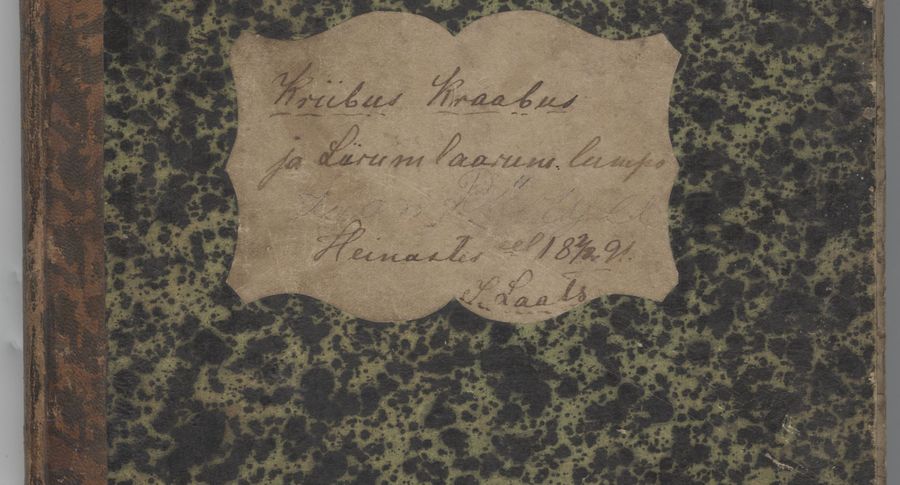 Kriibus Kraabus
ja Lärum laarum. lumps
Heinastes el 18 2/12 91.
S. Laats